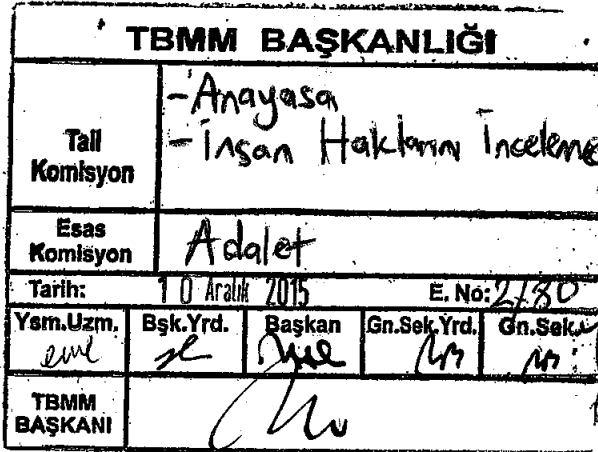 TBMM BAŞKANLIĞI
Tali Komisyon
-Anayasa
-İnsan Haklarını İnceleme
Esas Komisyon
Adalet
Tarih: 10 Aralık 2015 E. No: 2/80
Ysm.Uzm. Bşk.Yrd. Başkan Gn.Sek.Yrd. Gn.Sek.
TBMM BAŞKANI